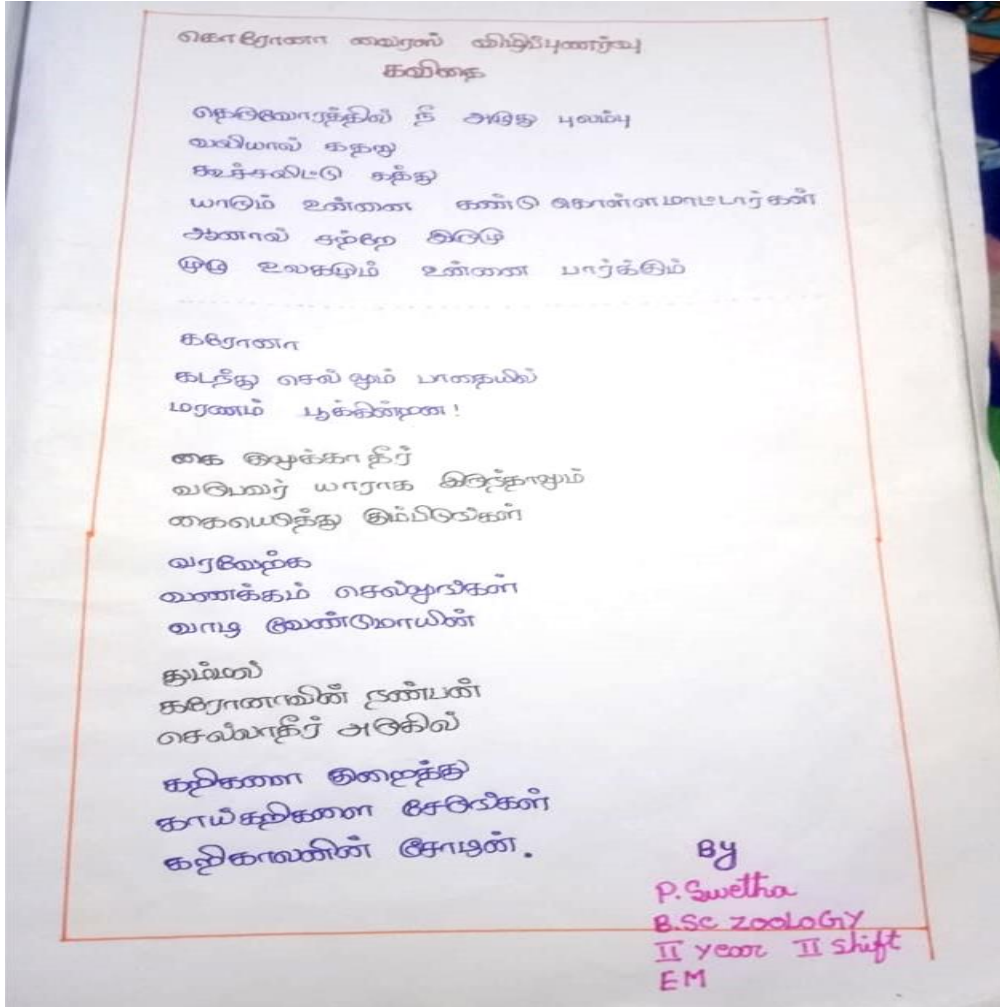 கொரோனா வைரஸ் விழிப்புணர்வு
கவிதை
தெருவோரத்தில் நீ அழுது புலம்பு
வலியால் கதறு
கூச்சலிட்டு கத்து
யாரும் உன்னை கண்டு கொள்ளமாட்டார்கள்
ஆனால் சற்றே இருமு
முழு உலகமும் உன்னை பார்க்கும்
கரோனா
கடந்து செல்லும் பாதையில்
மரணம் பூக்கின்றன!
கை குலுக்காதீர்
வருபவர் யாராக இருந்தாலும்
கையெடுத்து கும்பிடுங்கள்
வரவேற்க
வணக்கம் செலுங்கள்
வாழ வேண்டுமாயின்
தும்மல்
கரோனாவின் நண்பன்
செல்லாதீர் அருகில்
கறிகளை குறைத்து
காய்கறிகளை சேருங்கள்
கறிகாலனின் சோழன்.
By
P. Swetha
B.Sc ZOOLOGY
II year II Shift
EM